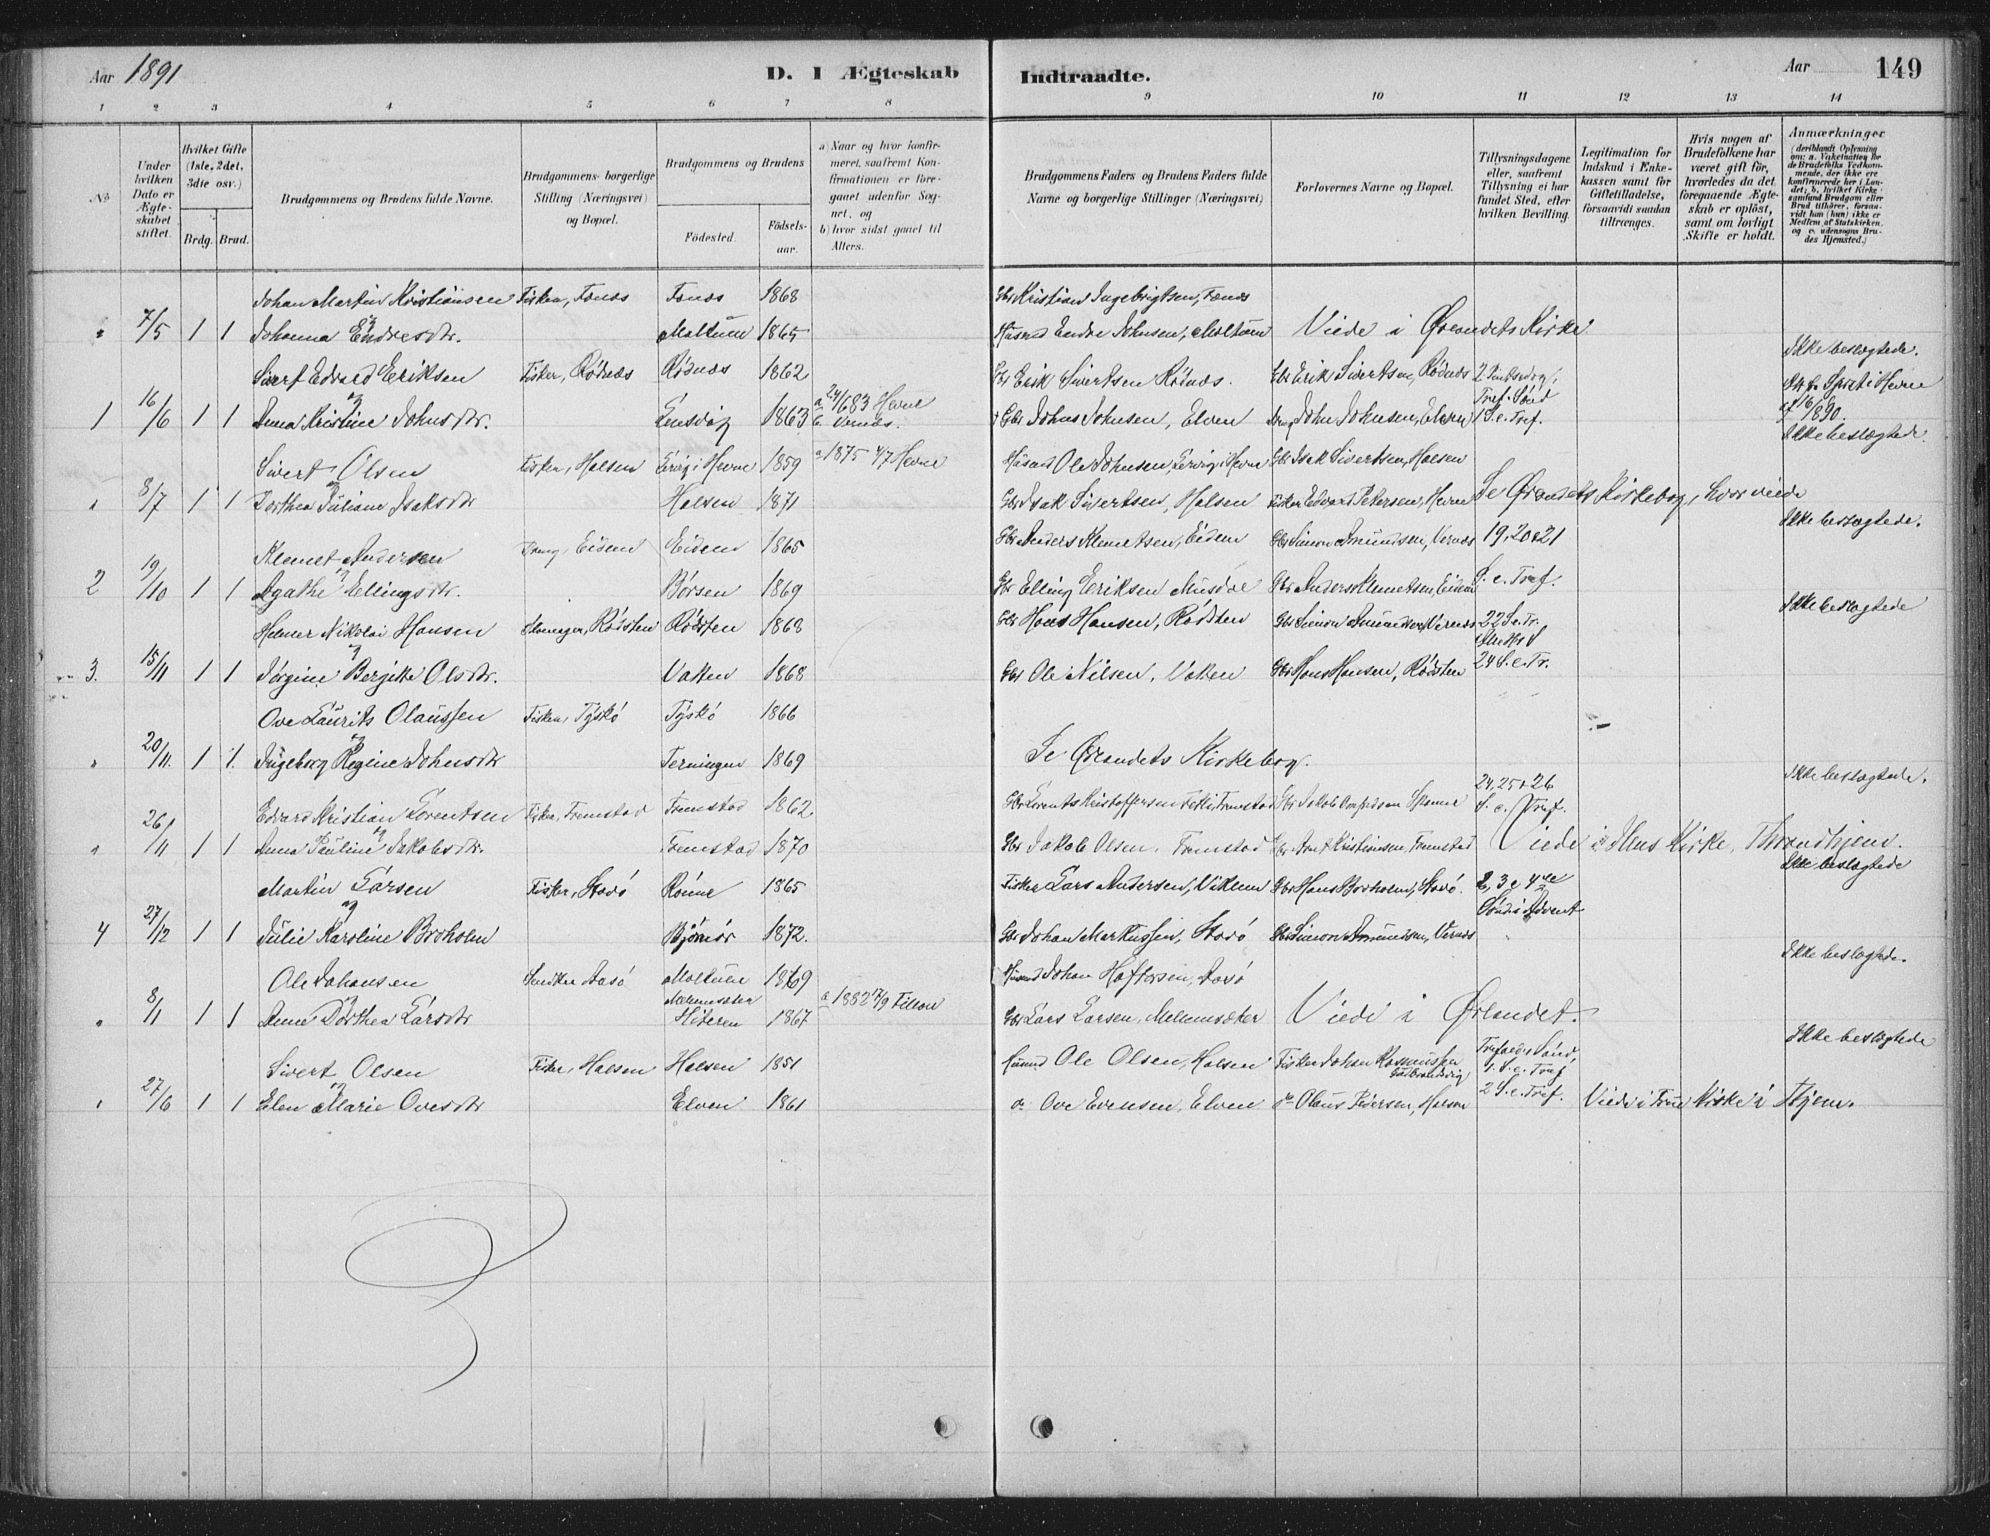 Aar 1891
D. I Ægteskab Indtraadte.
Aar 149
1 2 3 4 5 6 7 8 9 10 11 12 13 14
No
Under hvilken Dato er Ægteskabet stiftet.
Hvilket Gifte (1ste, 2det, 3die osv.)
Brdg. Brud.
Brudgommens og Brudens fulde Navne.
Brudgommens borgerlige Stilling (Næringsvei) og Bopæl.
Brudgommens og Brudens
Fødested.
Fødselsaar.
a) Naar og hvor konfirmeret, saafremt Konfirmationen er foregaaet udenfor Sognet, og
b) hvor sidst gaaet til Alters.
Brudgommens Faders og Brudens Faders fulde Navne og borgerlige Stillinger (Næringsvei)
Forlovernes Navne og Bopæl.
Tillysningsdagene eller, saafremt Tillysning ei har fundet Sted, efter hvilken Bevilling.
Legitimation for Indskud i Enkekassen samt for Giftetilladelse, forsaavidt saadan tiltrænges.
Hvis nogen af Brudefolkene har været gift før, hvorledes da det foregaaende Ægteskab er opløst, samt om lovligt Skifte er holdt.
Anmærkninger
(deriblandt Oplysning om: a. Vaksination for de Brudefolks Vedkommende, der ikke ere konfirmerede her i Landet; b. hvilket Kirkesamfund Brudgom eller Brud tilhører, forsaavidt han (hun) ikke er Medlem af Statskirken, og c. udensogns Brudes Hjemsted.)
Johan Martin Kristiansen Fisker, Fonæs Fonæs 1868 Gbr Kristian Ingebrigtsen, Fonæs
" 7/5 1 1 Johanna Endresdtr. Moltun 1865 Husmd Endre Johnsen, Moltun Viede i Ørlandets Kirke
Ikke beslægtede.
Sivert Edvard Eriksen Fisker, Rødnæs Rødnæs 1862 Gbr Erik Sivertsen Rødnæs. Gbr Erik Sivertsen, Rødnæs 2 Pintsedag, Tref. Sønd
1 16/6 1 1 Anna Kristine Johnsdtr. Lensvig 1863 a 24/6 83 Hevne b. Vernes. Gbr Johns Johnsen, Elven Drug John Johnsen, Elven 1 S. e. Tref. 16/8 90.
Ikke beslægtede
Sivert Olsen Fisker, Holsen 1859 a 1875 4/7 Hevne Husmd Ole Johnsen, Gbr Isak Sivertsen, Holsen
" 8/7 1 1 Dorthea Juliane Isaksdtr Holsen 1871 Gbr Isak Sivertsen, Holsen Fisker Edvard Petersen, Hevne Se Ørlandets Kirkebog, hvor viede
Ikke beslægtede.
Klemet Andersen Drug, Eiden Eiden 1865 Gbr Anders Klemetsen, Eiden Gbr Simon Amundsen, Vernæs 19, 20 & 21
2 19/10 1 1 Agathe Ellingsdtr. Børsen 1869 Gbr Elling Eriksen Gbr Anders Klemetsen, Eiden S. e. Tref.
Ikke beslægtede
Helmer Nikolai Hansen Skomager, Rødsten Rødsten 1868 Gbr Hans Hansen, Rødsten Gbr Simon Amundsen, Vernæs 22 S. e. Tr.
3. 15/11 1 1 Jørgine Bergitte Olsdtr. Vatten 1868 Gbr Ole Nilsen, Vatten Gbr Hans Hansen, Rødsten 24 S. e. Tr.
Ove Laurits Olaussen Fisker, Tyskø Tyskø 1866
" 20/11. 1 1. Ingeborg Regine Johnsdtr Terningen 1869 Se Ørlandets Kirkebog.
Ikke beslægtede.
Edvard Kristian Lorentsen Fisker, Fremstad Fremstad 1862 Gbr Lorents Kristoffersen Gbr Jakob 24, 25 & 26 S. e. Tref.
" 26/11 1 1 Anna Pauline Jakobsdtr. Fremstad 1870 Gbr Jakob Olsen, Fremstad Gbr. Arnt Kristiansen, Fremstad Viede i Ilens Kirke, Throndhjem.
Ikke beslægtede
Martin Larsen Fisker, Storø Rømme 1865 Fisker Lars Andersen, Viklem Gbr Hans Broholm, Storø. 2, 3 & 4de Sønd. i Advent
4 27/12 1 1 Julie Karoline Broholm Bjørnør 1872. Gbr Johan Markussen, Storø Gbr Simon Amundsen, Vernæs
Ikke beslægtede.
Ole Johansen Moltun 1869 Husmd Johan
" 8/1 1 1 Anne Dorthea Larsdtr Hiteren 1867 a 1882 17/9 Fillan Gbr Lars Larsen, Mellemsæter Viede i Ørlandet.
Ikke beslægtede
Sivert Olsen Fisker, Holsen Holsen 1851 Husmd Ole Olsen, Holsen Fisker Johan Rasmussen Trefoldh. Sønd, 1. S. e. Tref
" 27/6 1 1 Elen Marie Ovesdtr Elven 1861 do Ove Evensen, Elven do Olaus Pedersen, Holsen 2 S. e. Tref. Viede i Frue Kirke i Thjem.